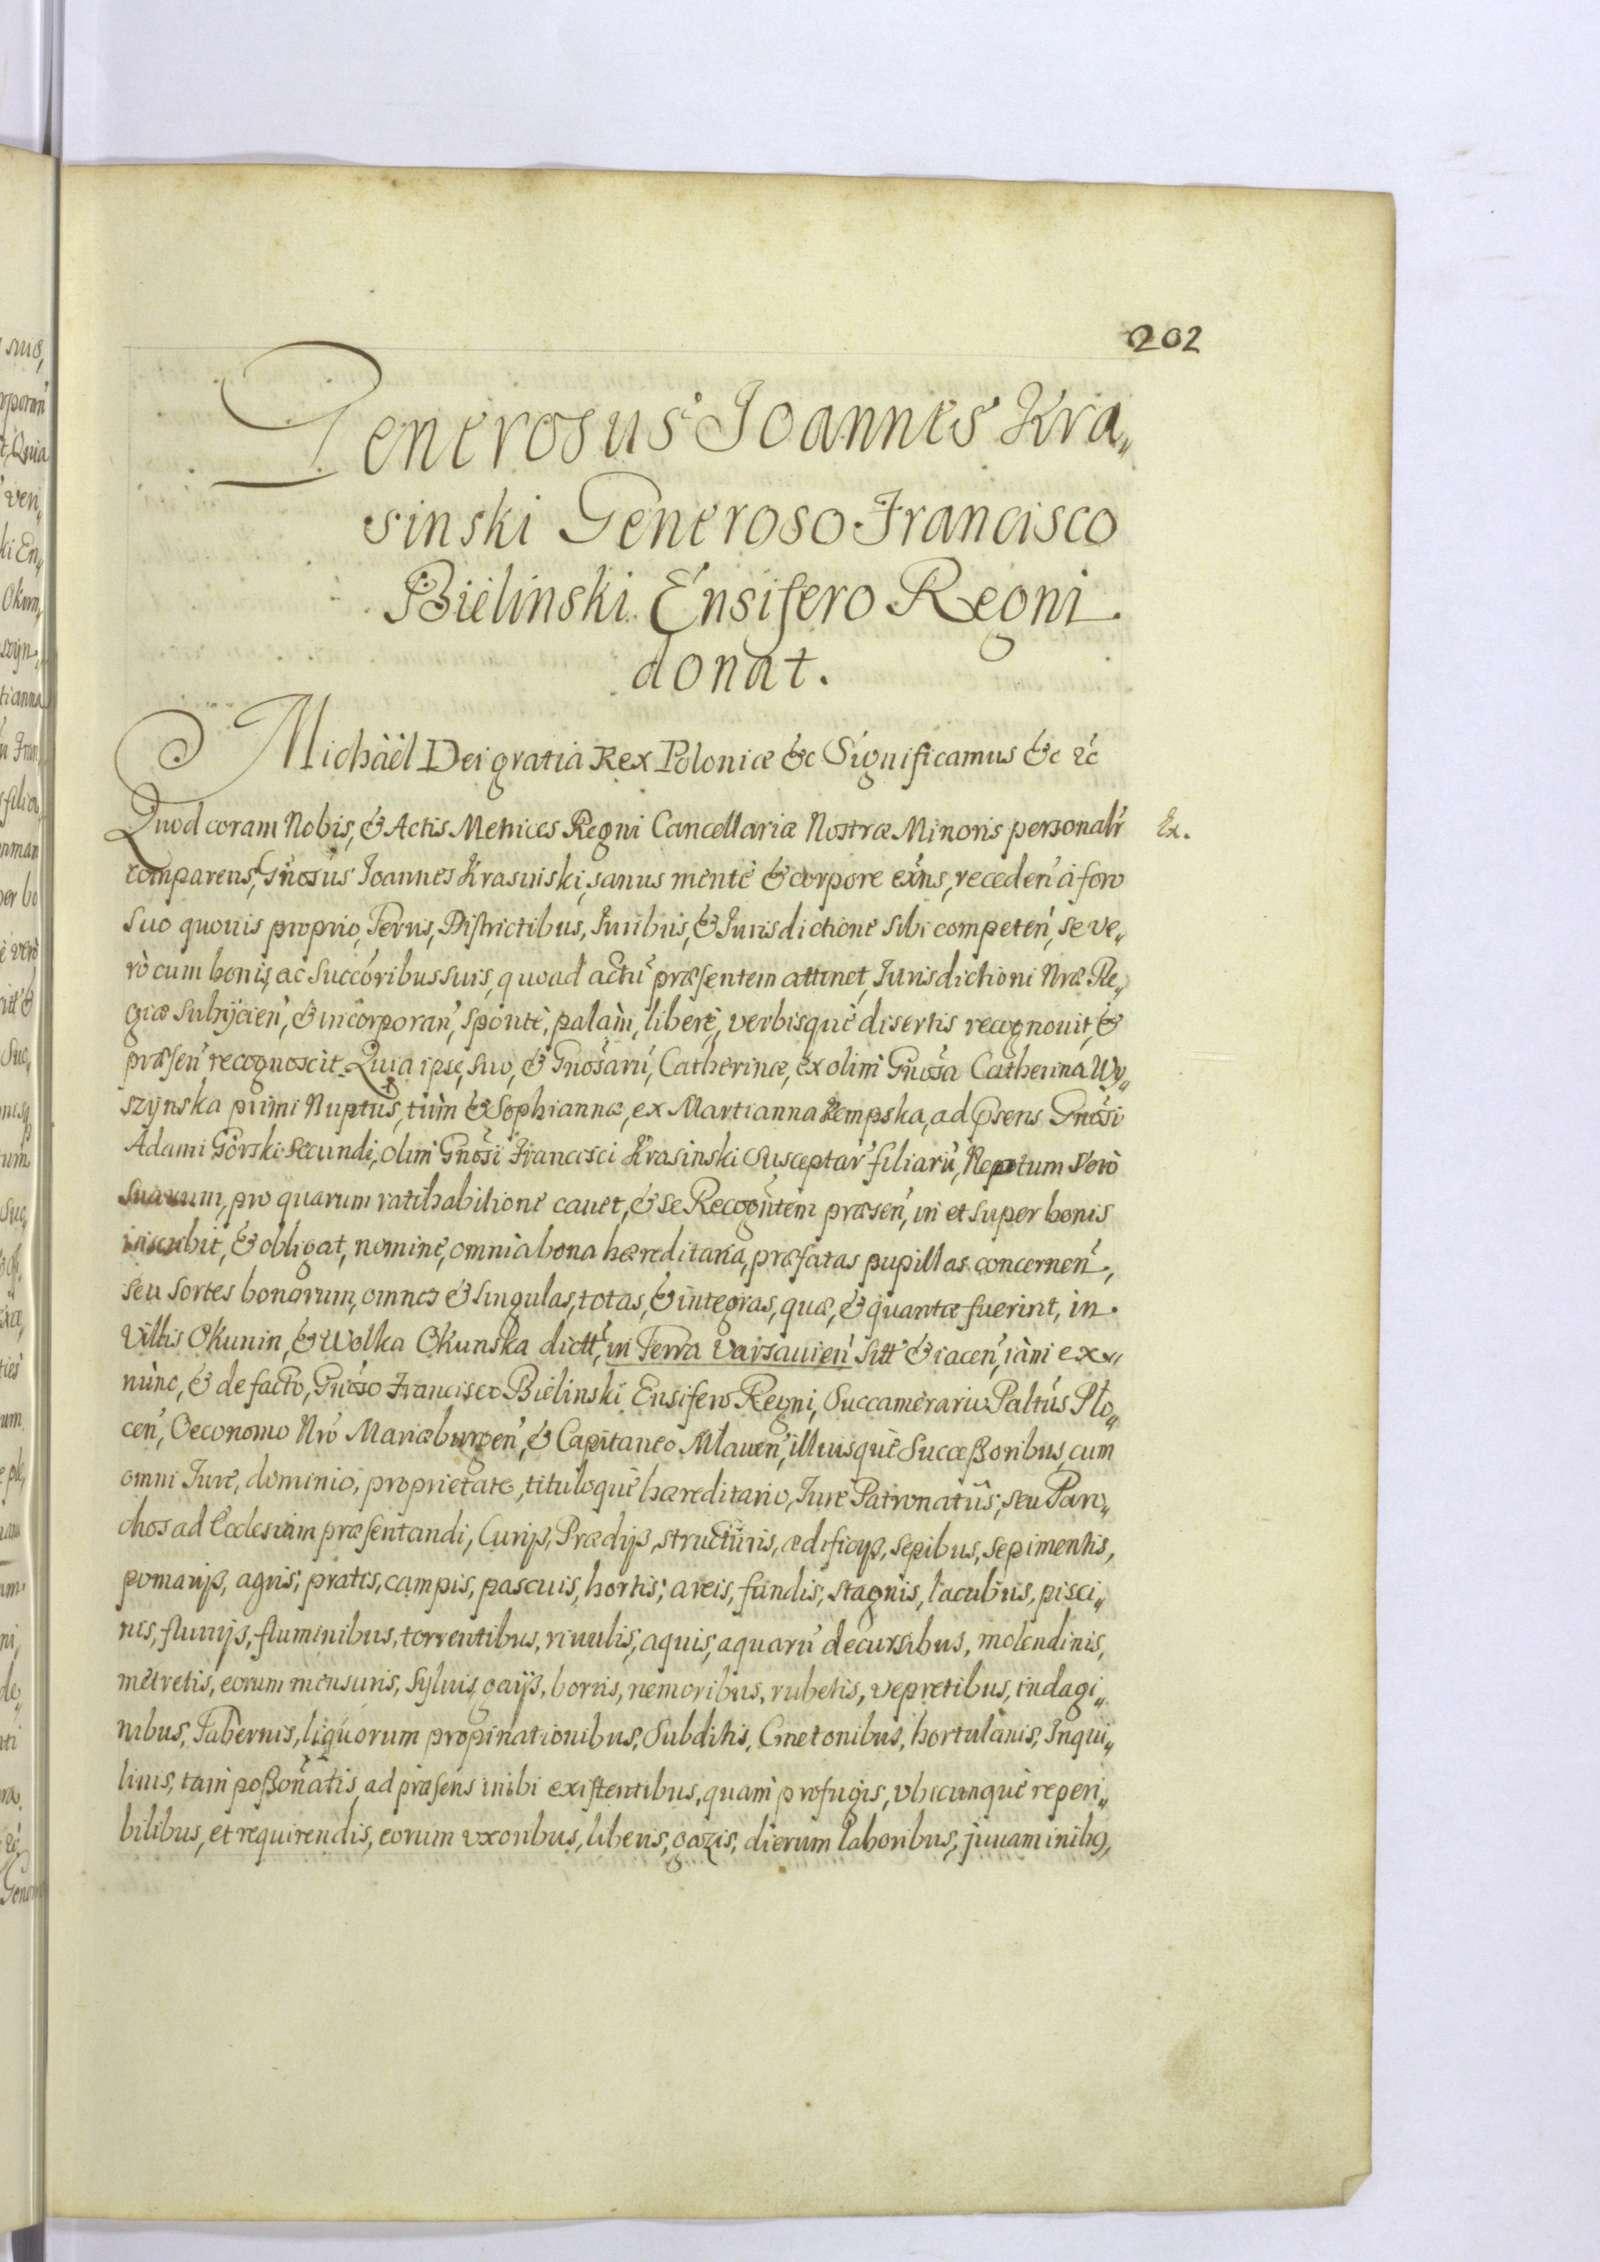 202
Generosus Joannes Kra„
sinski Generoso Francisco
Bielinski Ensifero Regni
donat.
Michäel Dei gratia Rex Poloniæ &c Significamus &c &c
Quod coram Nobis, & Actis Metrices Regni Cancellariæ Nostræ Minoris personalr̃ Ex.
comparens, Gñosus Joannes Krasinski, sanus mente & corpore exñs, receden̾ à foro
suo quouis proprio, Terris, Districtibus, Iuribus, & Iurisdictione sibi competen̾, se ve„
rò cum bonis, ac Succõribus suis, quoad actũ præsentem attinet, Iurisdictioni Nræ Re„
giæ subijcien̾, & incorporan̾, sponte, palàm, liberè, verbisquè disertis recognouit, &
præsen̾ recognoscit. Quia ipse, suo, & Gnõsarũ, Catherinæ, ex olim Gnõsa Catherina Wy„
szynska primi Nuptus, tùm & Sophiannæ, ex Martianna Kempska, ad p̃sens Gnõsi
Adami Gorski secundi, olim Gnõsi Francisci Krasinski susceptar̃ filiarũ, Neptum verò
suarum, pro quarum ratihabitione cauet, & se Recogñtem præsen̾, in et super bonis
inscribit, & obligat, nomine, omnia bona hæreditaria, præfatas pupillas concernen̾,
seu sortes bonorum, omnes & singulas, totas, & integras, quæ, & quantæ fuerint, in
Villis Okunin, & Wolka Okunska dictt̃, in Terra Varsauien̾ sitt̃ & iacen̾, iàm ex„
nùnc, & de facto, Gnõso Francisco Bielinski Ensifero Regni, Succamerario Paltũs Plo„
cen̾, Oeconomo Nrõ Mariæburgen̾, & Capitaneo Mlauen̾, illiusquè Successoribus, cum
omni Iure, dominio, proprietate, tituloquè hæreditario, Iure Patronatûs, seu Paro„
chos ad Ecclesiam præsentandi, Curijs, Prædijs, structuris, ædificijs, sepibus, sepimentis,
pomarijs, agris, pratis, campis, pascuis, hortis, areis, fundis, stagnis, lacubus, pisci„
nis, fluuijs, fluminibus, torrentibus, riuulis, aquis, aquarũ decursibus, molendinis,
metretis, eorum mensuris, syluis, gaijs, borris, nemoribus, rubetis, vepretibus, indagi„
nibus, Tabernis, liquorum propinationibus, Subditis, Cmetonibus, hortulanis, Inqui„
linis, tam possonatis, ad præsens inibi existentibus, quàm profugis, vbicunquè reperi„
bilibus, et requirendis, eorum vxoribus, liberis, gazis, dierum laboribus, juuaminibꝯ,